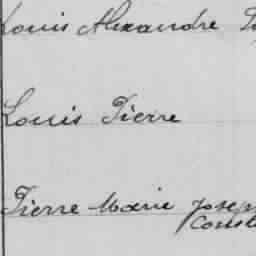 Louis Alexandre
Louis Pierre
Pierre Marie Joseph